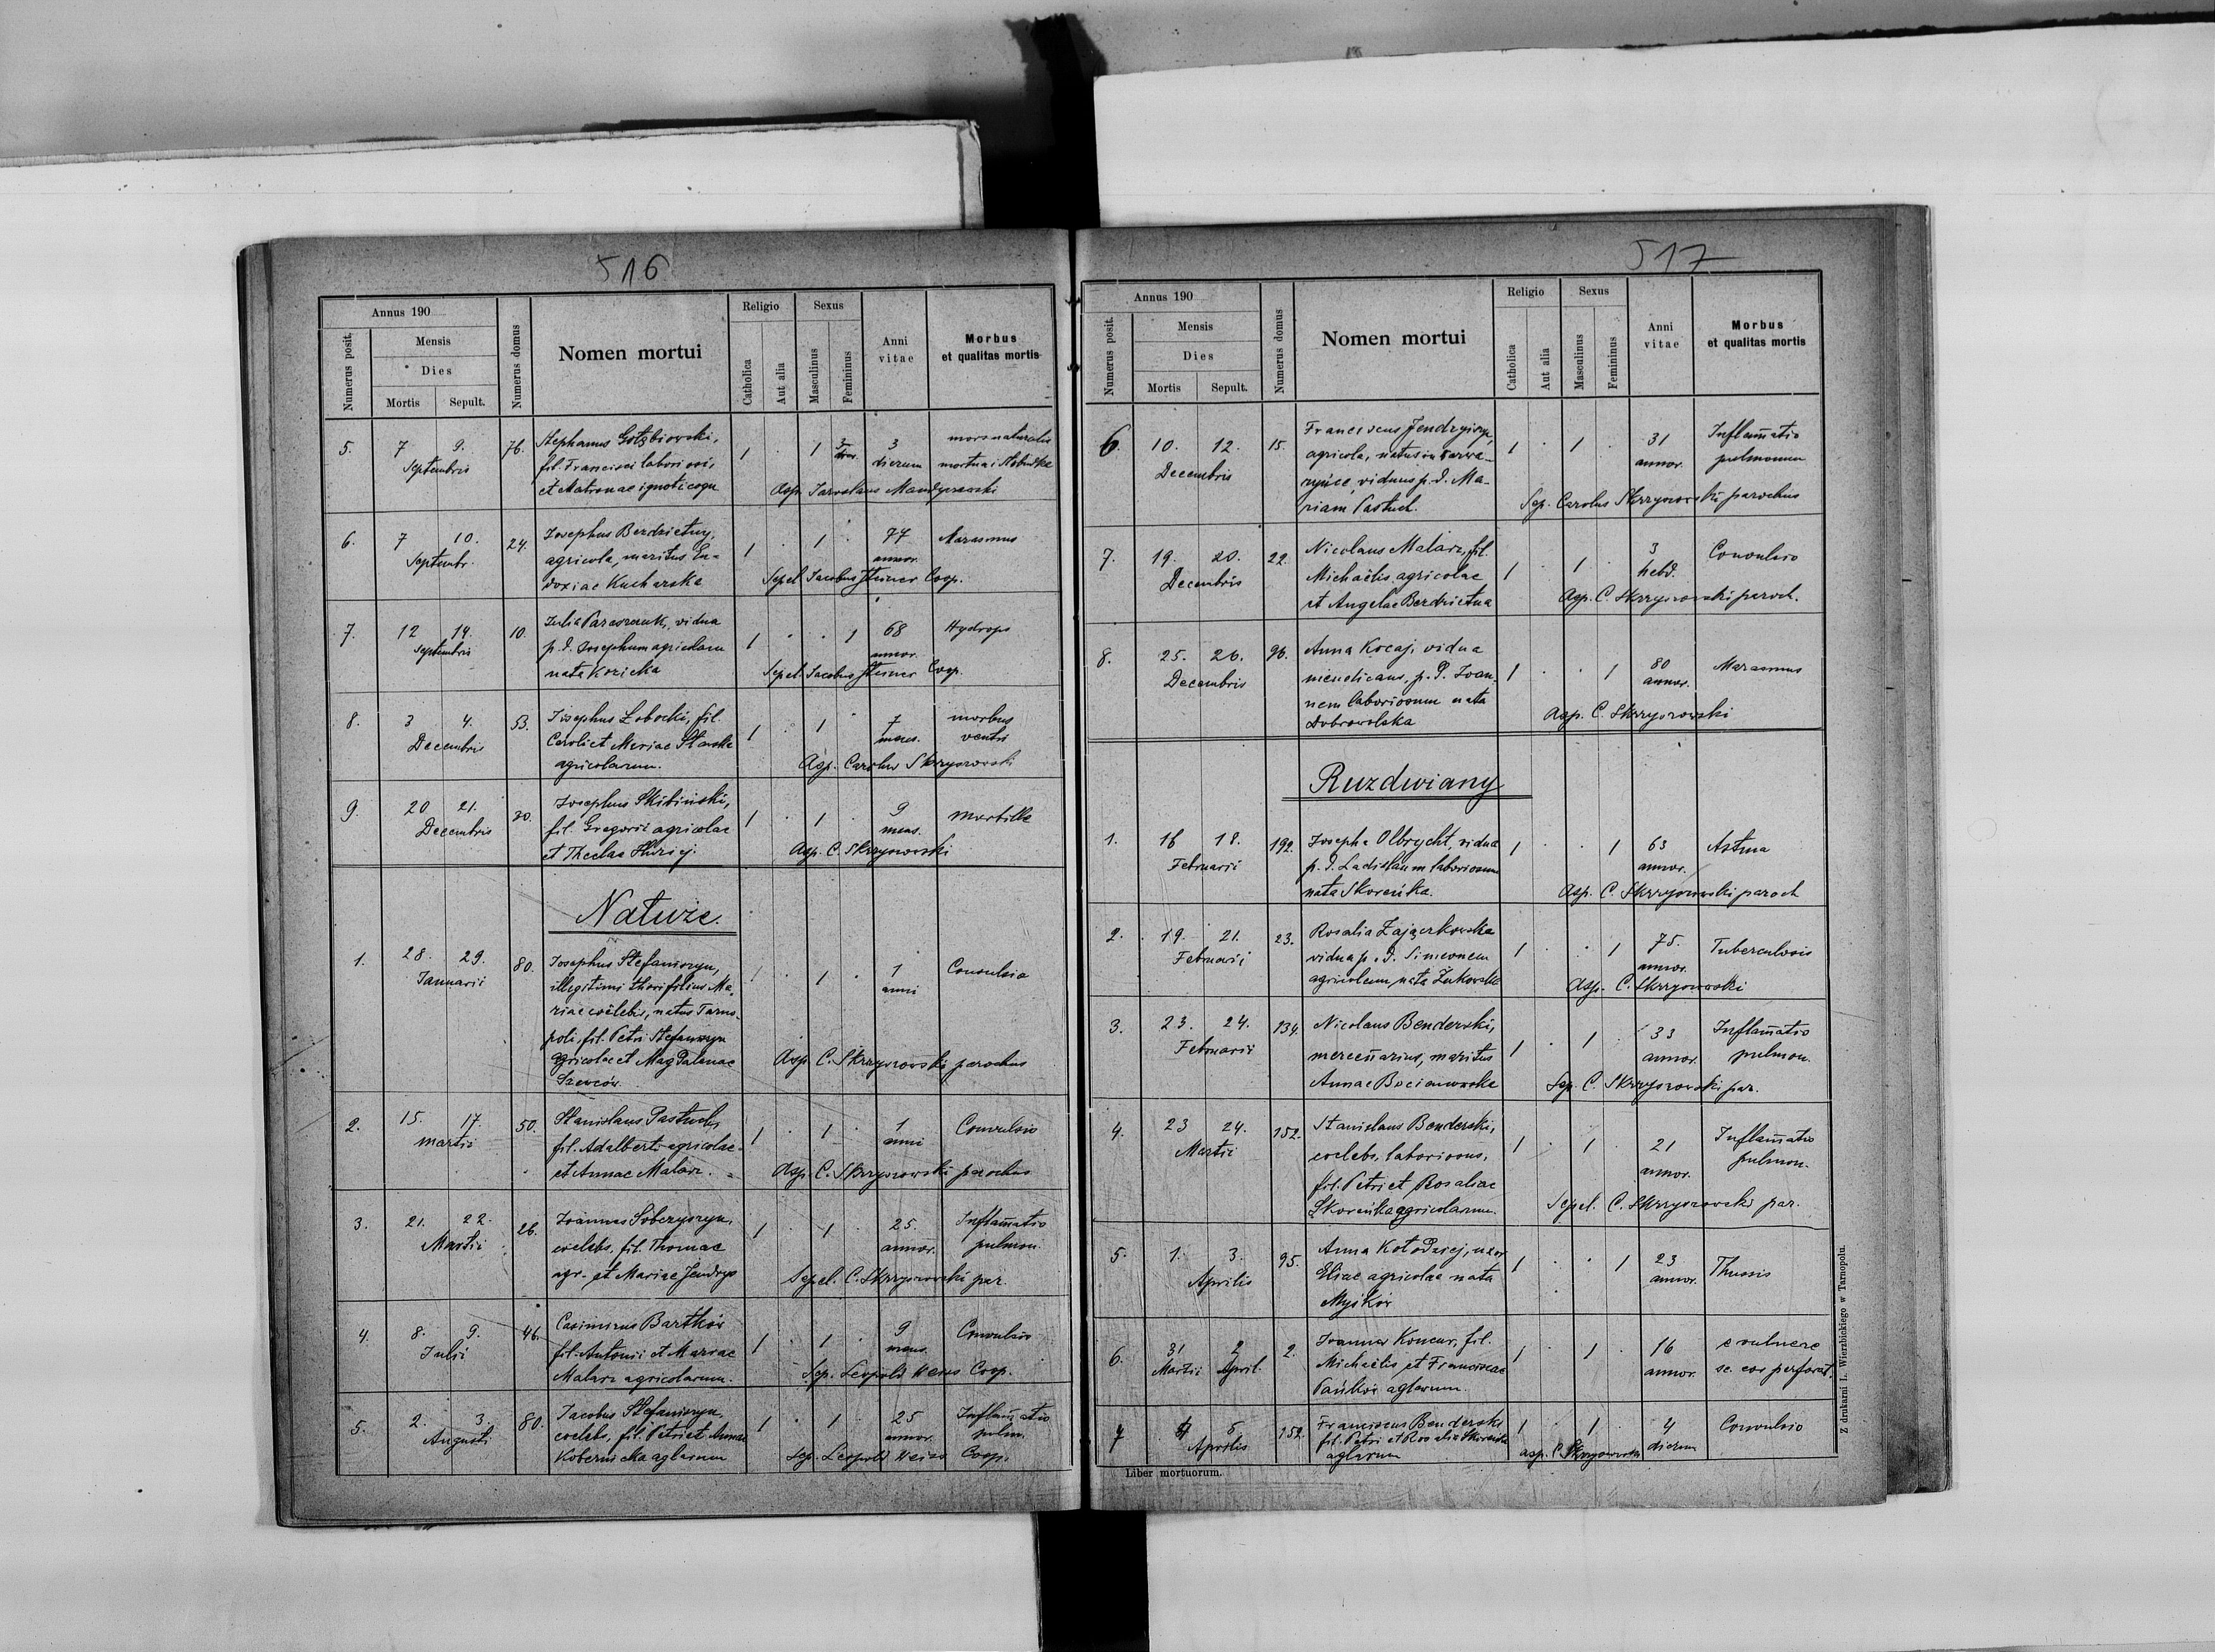 516
Annus 190
Numerus posit.
Mensis
Dies
Mortis
Sepult.
Numerus domus
Nomen mortui
Religio
Catholica
Aut alia
Sexus
Masculinus
Femininus
Anni
vitae
Morbus
et qualitas mortis
5. 7 9. 76. Stephanus 1 1 3 mors naturalis
Septembris fil. Francisci laboriosi, dierum
et Matronae ignoti cogn Asp. Jaroslaus Mandyczewski
6. 7 10. 24. Josephus Berdzietny, 1 1 77 Marasmus
Septembr. agricola, maritus Eu- annor.
doxiae Kucharska Sepel. Jacobus Steiner Coop.
7. 12 14. 10. Julia Paraszczuk, vidua 1 1 68 Hydrops
Septembris p. d. Josephum agricolam annor.
nata Kozicka Sepel. Jacobus Steiner Coop.
8. 3 4. 53. Josephus Łobocki, fil. 1 1 7 morbus
Decembris Caroli et Mariae mens. ventri
agricolarum. Asp. Carolus Skrzyszowski
9. 20 21. 30. Josephus Skibinski, 1 1 9 morbilli
Decembris fil. Gregorii agricolae mens.
et Theclae Huziej. Asp. C. Skrzyszowski
Natuże.
1. 28. 29. 80. Josephus Stefaniszyn, 1 1 1 Convulsio
Januarii illegitimi thori filius Ma- anni
riae coelebis, natus Tarno-
poli, fil. Petri Stefaniszyn
agricolae et Magdalenae Asp. C. Skrzyszowski parochus
Szewców
2. 15. 17. 50. Stanislaus Pastuch, 1 1 1 Convulsio
Martii fil. Adalberti agricolae anni
et Annae Malarz. Asp. C. Skrzyszowski parochus
3. 21. 22. 26. Joannes Soberyszyn, 1 1 25. Inflam̄atio
Martii coelebs, fil. Thomae annor. pulmon.
agr. et Mariae Jendrys Sepel. C. Skrzyszowski par.
4. 8. 9. 46. Casimirus Bartków 1 1 9 Convulsio
Julii fil. Antonii et Mariae mens.
Malarz agricolarum. Sep. Leopold Weiss Coop.
5. 2. 3. 80. Jacobus Stefaniszyn, 1 1 25 Inflam̄atio
Augusti coelebs, fil. Petri et Annae annor. pulm.
aglarum Sep. Leopold Weiss Coop.
517
Annus 190
Numerus posit.
Mensis
Dies
Mortis
Sepult.
Numerus domus
Nomen mortui
Religio
Catholica
Aut alia
Sexus
Masculinus
Femininus
Anni
vitae
Morbus
et qualitas mortis
6. 10. 12. 15. Franciscus Jendryiszyn, 1 1 31 Inflam̄atio
Decembris agricola, natus in annor. pulmonum
viduus p. d. Ma-
riam Pastuch. Sep. Carolus Skrzyszowski parochus
7. 19. 20. 22. Nicolaus Malarz, fil. 1 1 3 Convulsio
Decembris Michaëlis agricolae hebd.
et Angelae Berdzietna Asp. C. Skrzyszowski paroch.
8. 25. 26. 96. Anna Kocaj, vidua 1 1 80 Marasmus
Decembris mendicans, p. d. Joan- annor.
nem laboriosum nata
Dobrowolska Asp. C. Skrzyszowski
Ruzdwiany
1. 16 18. 192. Josepha Olbrycht, vidua 1 1 63 Astma
Februarii p. d. Ladislaum laboriosum annor.
nata Skoreńka. Asp. C. Skrzyszowski paroch
2. 19. 21. 23. Rosalia Zajączkowska 1 1 75. Tuberculosis
Februarii vidua p. d. Simeonem annor.
agricolam, nata Żukowska Asp. C. Skrzyszowski
3. 23. 24. 134. Nicolaus Benderski, 1 1 33 Inflam̄atio
Februarii mercen̄arius, maritus annor. pulmon.
Annae Bocianowska Sep. C. Skrzyszowski par.
4. 23 24. 152. Stanislaus Benderski, 1 1 21 Inflam̄atio
Martii coelebs, laboriosus, annor. pulmon.
fil. Petri et Rosaliae
Skoreńka agricolarum. Sepel. C. Skrzyszowski par.
5. 1. 3. 95. Anna Kołodziej, uxor 1 1 23 Thussis
Aprilis Eliae agricolae nata annor.
Myśków
6. 31 2 2. Joannes Koncur, fil. 1 1 16 e vulnere
Martii April. Michaëlis et Franciscae annor. sc. cor perforat.
Pańków aglarum
7 4 5 152. Franciscus Benderski 1 1 4 Convulsio
Aprilis fil. Petri et Rosalia Skoreńka dierum
aglarum asp. C. Skrzyszowski
Liber mortuorum.
Z drukarni L. Wierzbickiego w Tarnopolu.